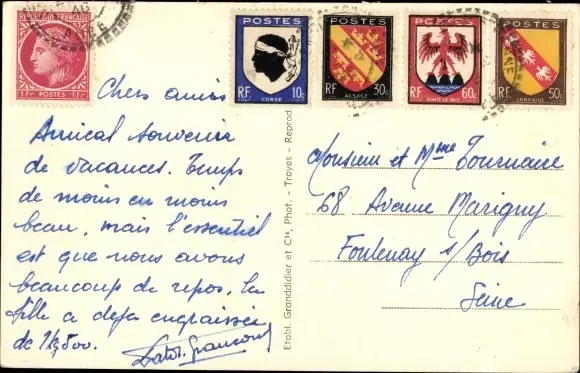 RÉPUBLIQUE FRANÇAISE
1 Fr POSTES 1 Fr
POSTES
RF 10c
CORSE
POSTES
RF 30c
ALSACE
POSTES
RF 60c
COMTÉ DE NICE
POSTES
RF 50c
LORRAINE
Chers amis
Amical souvenir
de vacances. Temps
de moins en moins
beau, mais l'essentiel
est que nous avons
beaucoup de repos. la
fille a déjà engraissée
de 1kg500.
Etabl. Granddidier et Cie, Phot. - Troyes - Reprod.
Monsieur et Mme Tournaire
68 Avenue Marigny
Fontenay s/Bois
Seine